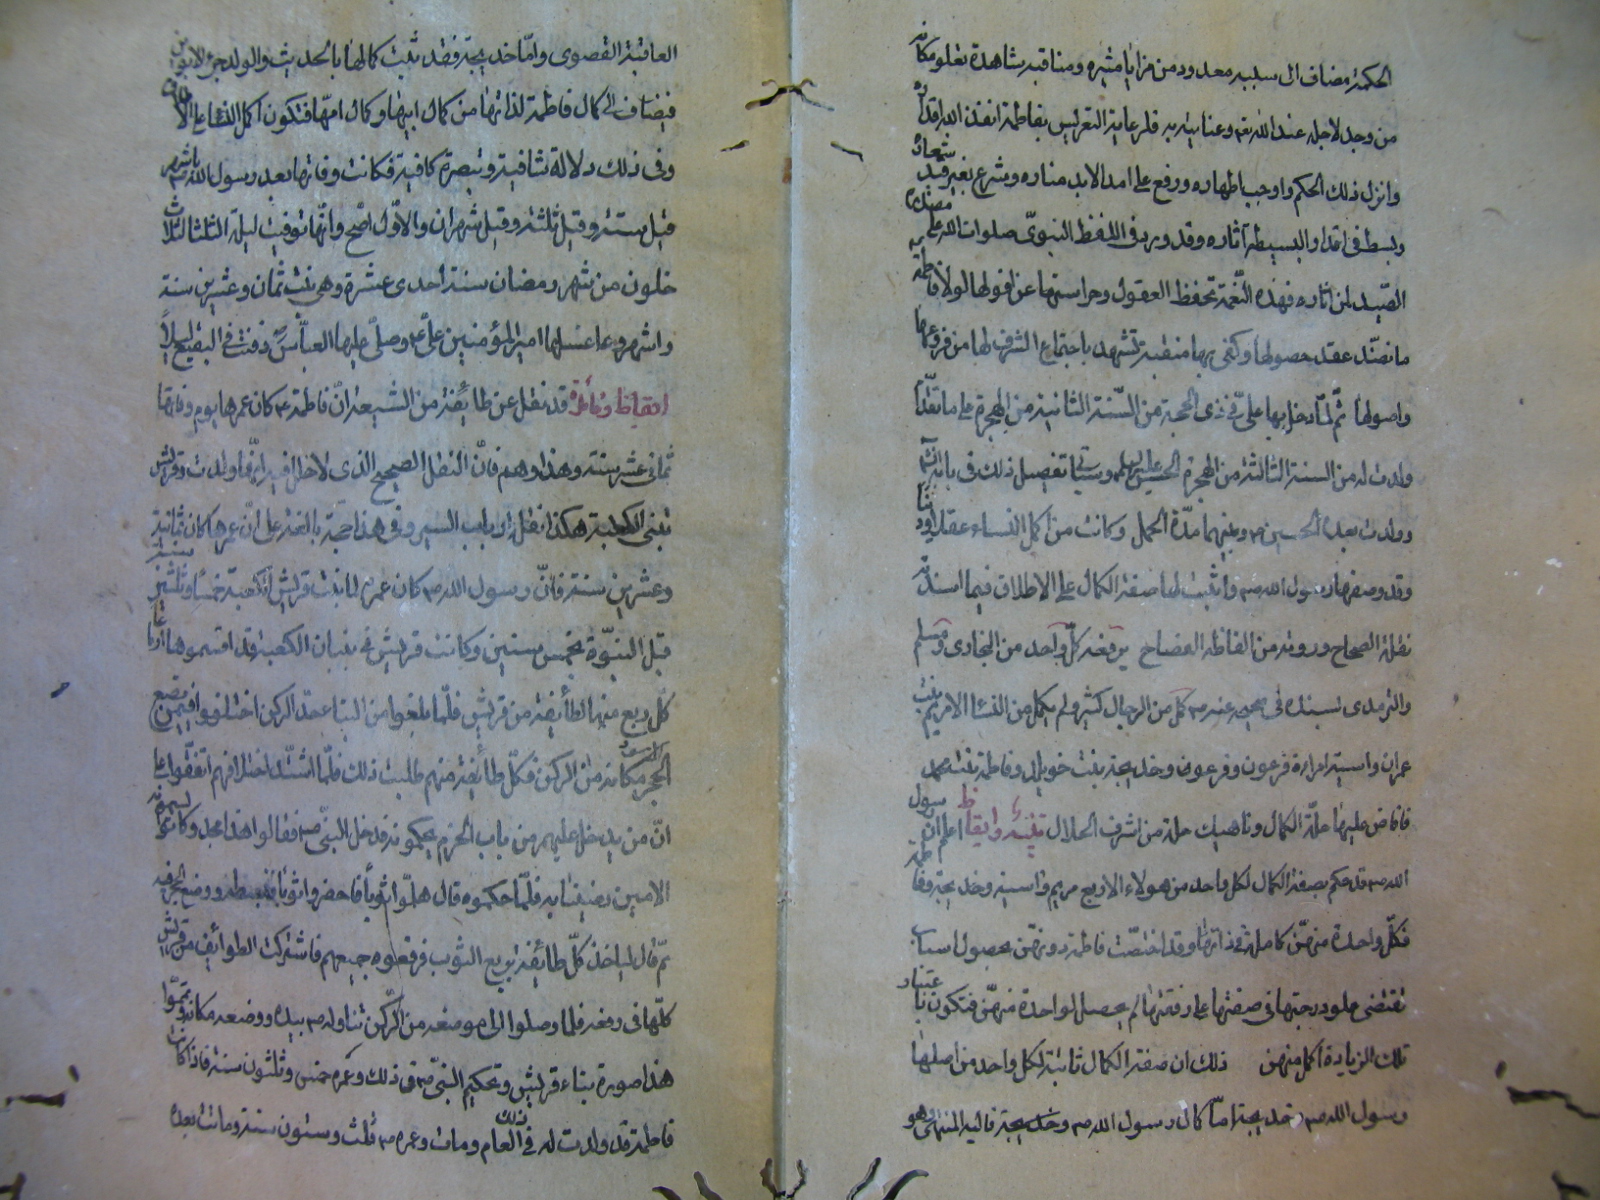 الحكمة مضاف الى سببه معدود من مزايا مثيره ومناقبه شاهدة بعلو مكانه
من وجد لاجله عند الله تعم وعنايته به فلرعاية التعريس بفاطمة انفذ الله اقداره
وانزل ذلك الحكم واوجب اظهاره ورفع على امد الابد مناره وشرع بغير قيد شعاره
وبسط فى اقداو البسيطة آثاره وقد ورد فى اللفظ النبوى صلوات الله على مصدره
فهذه النعمة تحفظ العقول وحراستها عن افولها لولا فاطمة
ما نضد عقد حصولها وكفى بها منقبة تشهد باجتماع الشرف لها من فروعها
واصولها ثم لما دخل بها على فى ذى الحجة من السنة الثانية من الهجرة على ما تقدم
ولدت له من السنة الثالثة من الهجرة الحسن عليه السلم وسياتى تفصيل ذلك فى بابه
وولدت بعده الحسين وبينهما مدة الحمل وكانت من اكمل النساء عقلا
وقد وصفها رسول الله صم واثبت لها صفة الكمال على الاطلاق فيما اسنده
نقلة الصحاح وروته من الفاظه الفصاح يرفعه كل واحد من البخارى ومسلم
والترمذى بسنده فى صحيحه عنه صم كمل من الرجال كثير ولم يكمل من النساء الا مريم بنت
عمران واسية امراة فرعون وخديجة بنت خويلد وفاطمة بنت محمد
فافاض عليها حلة الكمال وناهيك حلة من اشرف الحلال تنبيه وايقاظ اعلم ان رسول
الله صم قد حكم بصفة الكمال لكل واحد من هولاء الاربع مريم واسية وخديجة وفاطمة
فكل واحدة منهن كاملة فى ذاتها وقد اختصت فاطمة دونهن بحصول اسباب
تقتضى علو درجتها فى صفتها على رفقتها لم يحصل لواحدة منهن فتكون باعتبار
تلك الزيادة اكمل منهن ذلك ان صفة الكمال ثابتة لكل واحد من اصليها
رسول الله صم وخديجة اما كمال رسول الله صم فاليه المنتهى وهو
العاقبة القصوى واما خديجة فقد ثبت كمالها بالحديث والولد جزء الابوين
فيضاف الى كمال فاطمة لذاتها من كمال ابيها وكمال امها فتكون اكمل النساء على الاطلاق
وفى ذلك دلالة شافية وتبصرة كافية فكانت وفاتها بعد رسول الله صم باشهر
قيل ستة وقيل ثلثة وقيل شهران والاول اصح وانها توفيت ليلة الثلثا لثلاث
خلون من شهر رمضان سنة احدى عشرة وهى بنت ثمان وعشرين سنة
واشهر وعا غسلها امير المؤمنين على عم وصلى عليها العباس ودفنت فى البقيع ليلا
قد نقل عن طائفة من الشيعة ان فاطمة عم كان عمرها يوم وفاتها
ثمانى عشر سنة وهذا وهم فان النقل الصحيح الذى لاخلل فيه انها ولدت وقريش
تبنى الكعبة هكذا نقله ارباب السير وفى هذا حجة بالغة على ان عمرها كان ثمانية
وعشرين سنة فان رسول الله صم كان عمره لما بنت قريش الكعبة خمسا وثلثين سنة
قبل النبوة بخمس سنين وكانت قريش فى بنيان الكعبة قد اقتسموها ارباعا
كل ربع منها لطائفة من قريش فلما بلغوا من البنا حد الركن اختلفوا فيمن يضع
الحجر الاسود مكانه من الركن فكل طائفة منهم طلبت ذلك فلما اشتد اختلافهم اتفقوا على
ان من يدخل عليهم من باب الحرم يحكمونه فدخل النبى صم فقالوا هذا محمد وكانوا يسمونه
الامين رضينا به فلما حكموه قال هلموا ثوبا فاحضروا ثوبا فبسطه ووضع الحجر فيه
ثم قال لياخذ كل طائفة بربع الثوب فرفعوه جميعهم فاشتركت الطوائف من قريش
كلها فى رفعه فلما وصلوا الى موضعه من الركن تناوله صم بيده ووضعه مكانه وتموا
هذا صورة بناء قريش وتحكيم النبى صم فى ذلك وعمره خمس وثلثون سنة فاذا كانت
فاطمة قد ولدت له فى ذلك العام ومات وعمره صم ثلث وستون سنة وماتت بعده